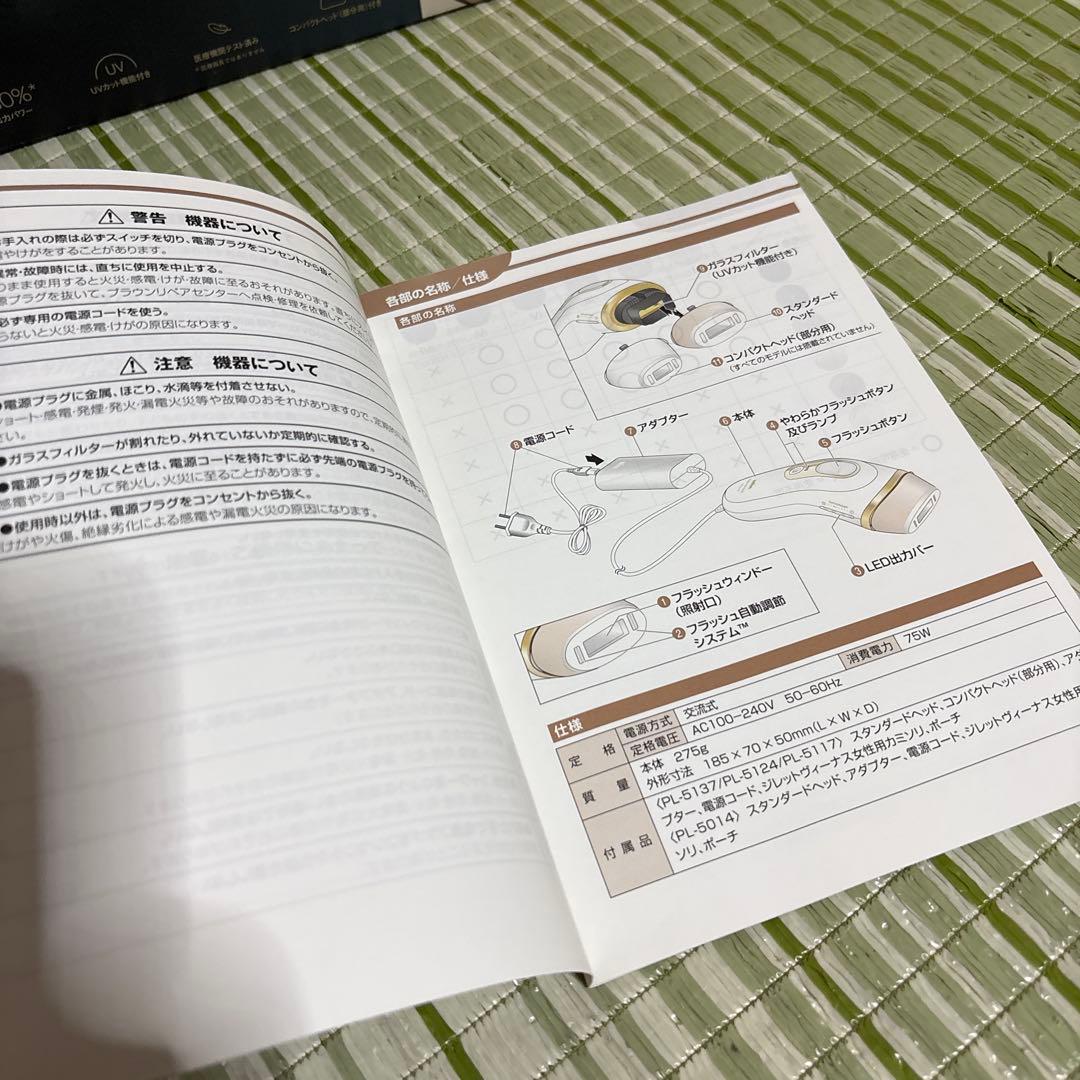 コンパクトヘッド(部分用)付き
医療機関テスト済み
※医療器具ではありません
UV
UVカット機能付き
0%*
出力パワー
警告 機器について
手入れの際は必ずスイッチを切り、電源プラグをコンセントから抜く
やけがをすることがあります。
異常・故障時には、直ちに使用を中止する。
まま使用すると火災・感電・けが・故障に至るおそれがあります。直ちに
プラグを抜いて、ブラウンリペアセンターへ点検・修理を依頼してくだ
必ず専用の電源コードを使う。
ないと火災・感電・けがの原因になります。
注意 機器について
●電源プラグに金属、ほこり、水滴等を付着させない。
ショート・感電・発煙・発火・漏電火災等や故障のおそれがありますので、定期的に
さい。
●ガラスフィルターが割れたり、外れていないか定期的に確認する。
●電源プラグを抜くときは、電源コードを持たずに必ず先端の電源プラグを持って
感電やショートして発火し、火災に至ることがあります。
●使用時以外は、電源プラグをコンセントから抜く。
けがや火傷、絶縁劣化による感電や漏電火災の原因になります。
各部の名称／仕様
各部の名称
❾ガラスフィルター
(UVカット機能付き)
❿スタンダード
ヘッド
⓫コンパクトヘッド(部分用)
(すべてのモデルには搭載されていません)
❽電源コード
❼アダプター
❻本体
❹やわらかフラッシュボタン
及びランプ
❺フラッシュボタン
❸LED出力バー
❶フラッシュウィンドー
(照射口)
❷フラッシュ自動調節
システム™
仕様
定格 電源方式 交流式 消費電力 75W
定格電圧 AC100-240V 50-60Hz
質量 本体 275g
外形寸法 185×70×50mm(L×W×D)
付属品 〈PL-5137/PL-5124/PL-5117〉スタンダードヘッド、コンパクトヘッド(部分用)、アダ
プター、電源コード、ジレットヴィーナス女性用カミソリ、ポーチ
〈PL-5014〉スタンダードヘッド、アダプター、電源コード、ジレットヴィーナス女性用
ソリ、ポーチ